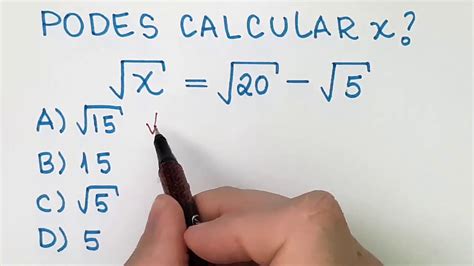 PODES CALCULAR x?
√x = √20 - √5
A) √15
B) 15
C) √5
D) 5